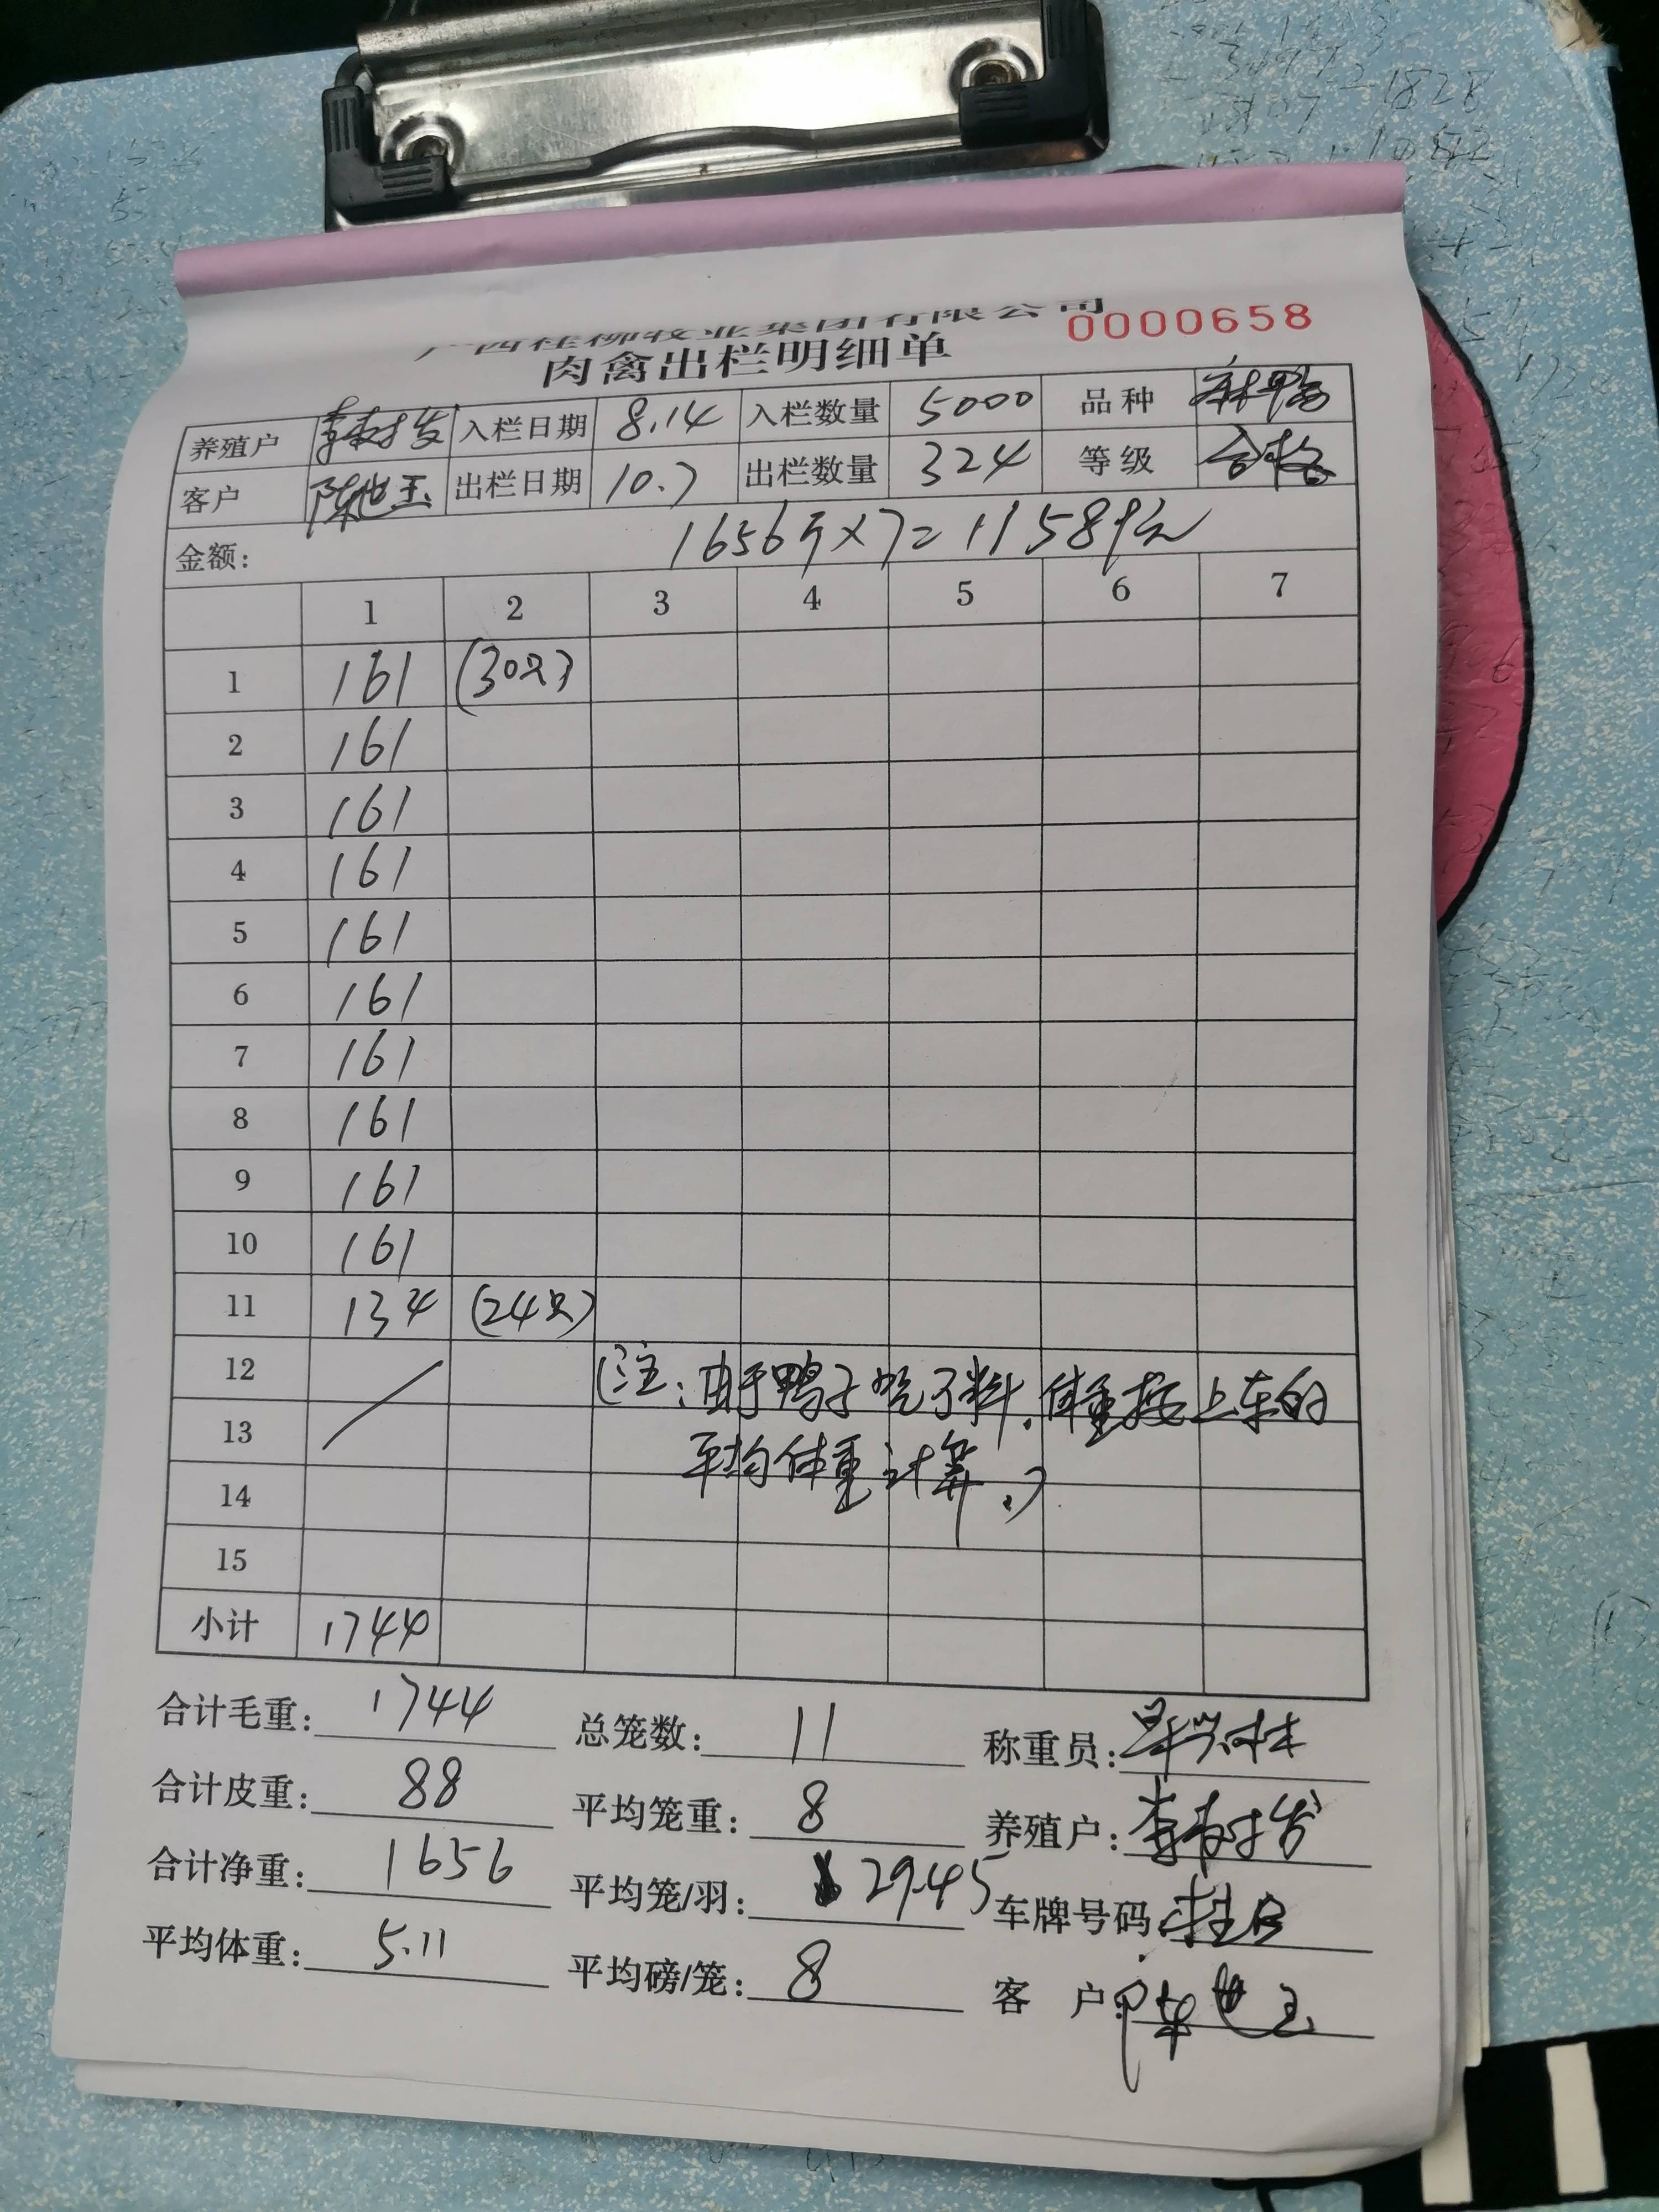 广西桂柳牧业集团有限公司
0000658
肉禽出栏明细单
养殖户 李春发 入栏日期 8.14 入栏数量 5000 品种 麻鸭
客户 陈世玉 出栏日期 10.7 出栏数量 324 等级 合格
金额: 1656斤×7=11589元
1 2 3 4 5 6 7
1 161 (30只)
2 161
3 161
4 161
5 161
6 161
7 161
8 161
9 161
10 161
11 134 (24只)
12 (注:由于鸭子吃了料,体重按上车的
13 平均体重计算.)
14
15
小计 1744
合计毛重: 1744 总笼数: 11 称重员:
合计皮重: 88 平均笼重: 8 养殖户:
合计净重: 1656 平均笼/羽: 29.45 车牌号码: 桂B
平均体重: 5.11 平均磅/笼: 8 客 户: 陈世玉